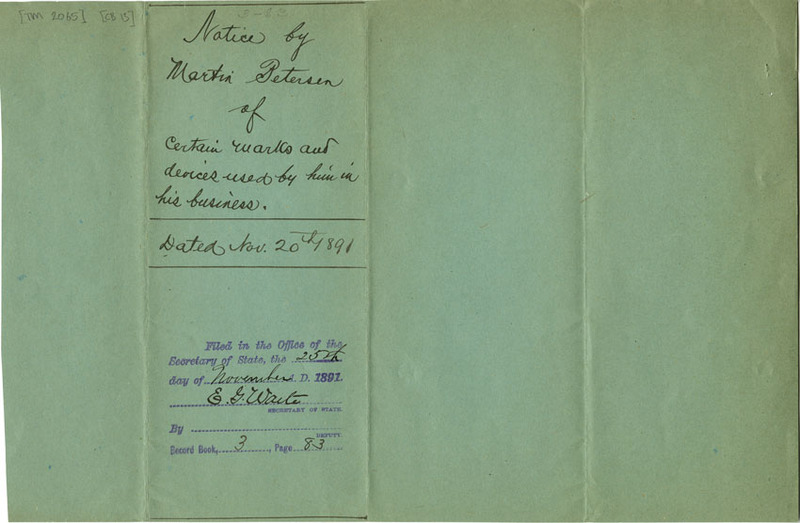 [TM 2065] [CB 15]
3-83
Notice by
Martin Petersen
of
Certain marks and
devices used by him in
his business.
Dated Nov. 20th 1891
Filed in the Office of the
Secretary of State, the 25th
day of November A. D. 1891.
E. G. Waite
SECRETARY OF STATE.
By
DEPUTY.
Record Book, 3, Page 83